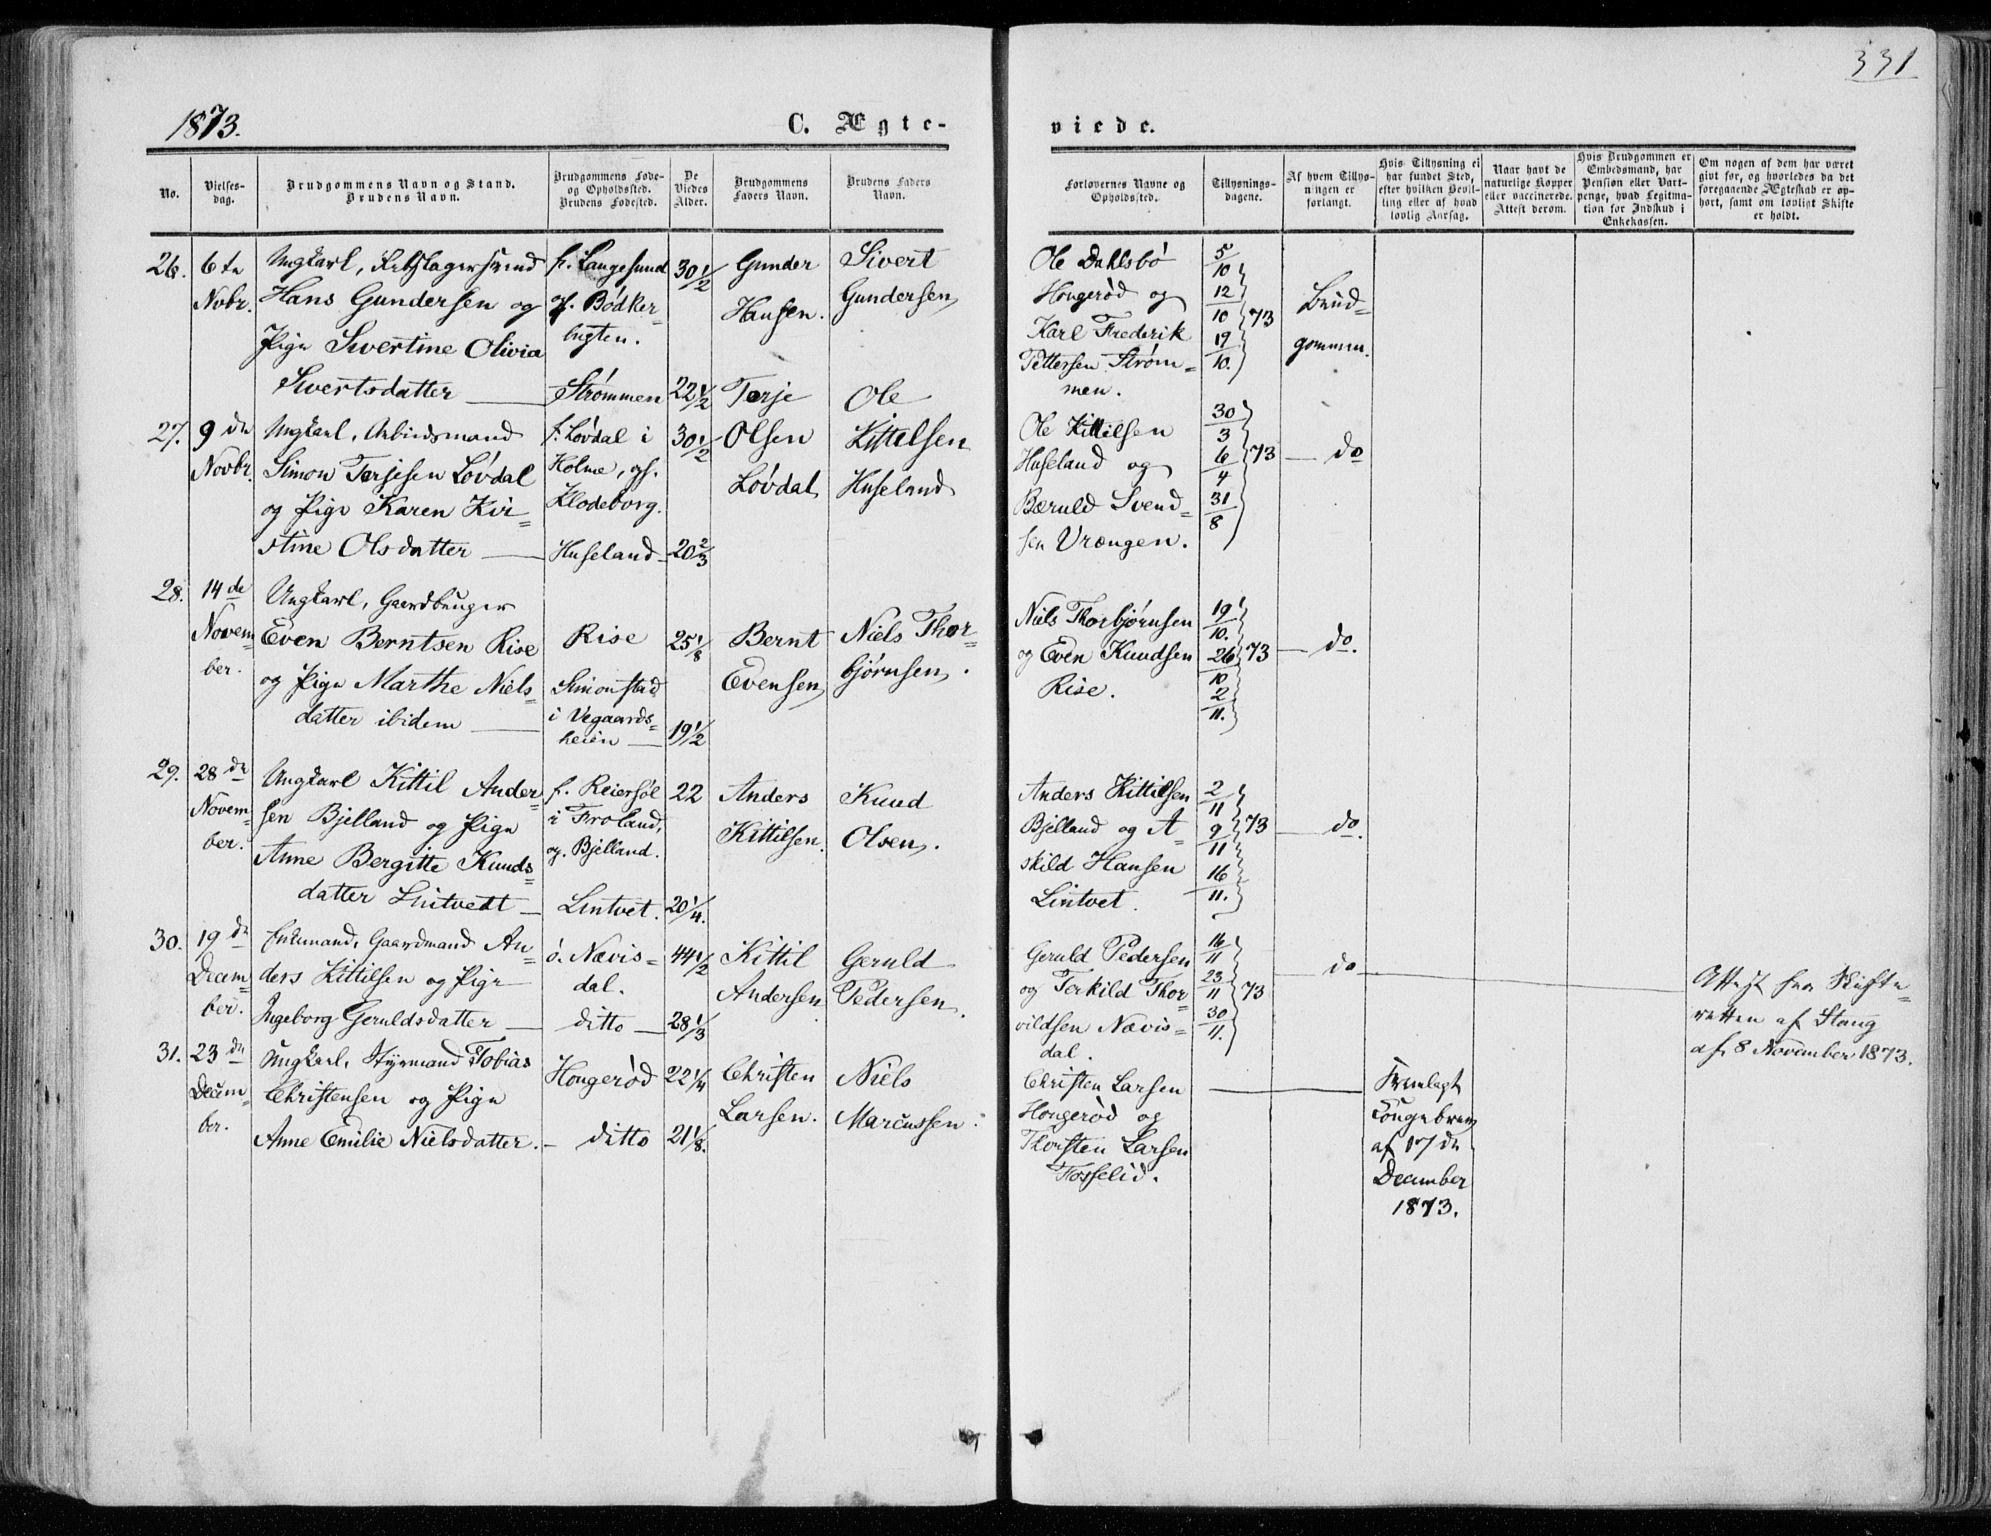 331
1873.
C. Ægte-
viede.
No.
Vielses-
dag.
Brudgommens Navn og Stand.
Brudens Navn.
Brudgommens Føde-
og Opholdssted.
Brudens Fødested.
De
Viedes
Alder.
Brudgommens
Faders Navn.
Brudens Faders
Navn.
Forlovernes Navne og
Opholdssted.
Tillysnings-
dagene.
Af hvem Tillys-
ningen er
forlangt.
Hvis Tillysning ei
har fundet Sted,
efter hvilken Bevil-
ling eller af hvad
lovlig Aarsag.
Naar havt de
naturlige Kopper
eller vaccinerede.
Attest derom.
Hvis Brudgommen er
Embedsmand, har
Pension eller Vart-
penge, hvad Legitima-
tion for Indskud i
Enkekassen.
Om nogen af dem har været
givt før, og hvorledes da det
foregaaende Ægteskab er op-
hørt, samt om lovligt Skifte
er holdt.
26.
6te
Novbr.
Ungkarl, Rebslagersvend
Hans Gundersen og
Pige Sivertine Olivia
Sivertsdatter
f. Langesund
of. Bödker-
bugten.
Strømmen
30 1/2
22 1/2
Gunder
Hansen.
Sivert
Gundersen
Ole Dahlsbö
Hougeröd og
Karl Frederik
Pettersen Strøm-
men.
5/10
12/10
19/10.
73
Brud-
gommen.
27.
9de
Novbr.
Ungkarl, Arbeidsmand
Simon Terjesen Lövdal
og Pige Karen Kir-
stine Olsdatter
f. Lövdal i
Holme, of.
Klodeborg.
Huseland
30 1/2
20 2/3
Terje
Olsen
Lövdal
Ole
Kittelsen
Huseland
Ole Kittilsen
Huseland og
Bæruld Svend-
sen Vrængen.
30/3
6/4
31/8
73
do
28.
14de
Novem-
ber.
Ungkarl, Gaardbruger
Even Berntsen Rise
og Pige Marthe Niels-
datter ibidem
Rise
Simonstad
i Vegaards-
heien
25 1/8
19 1/2
Bernt
Evensen
Niels Thor-
bjørnsen.
Niels Thorbjørnsen
og Even Knudsen
Rise.
19/10.
26/10
2/11.
73
do.
29.
28de
Novem-
ber.
Ungkarl Kittil Ander-
sen Bjelland og Pige
Anne Bergitte Knuds-
datter Lintvedt
f. Reiersöl
i Froland,
og. Bjelland.
Lintvet.
22
20 1/4.
Anders
Kittilsen.
Knud
Olsen.
Anders Kittilsen
Bjelland og A-
skild Hansen
Lintvet.
2/11
9/11
16/11.
73
do.
30.
19de
Decem-
ber.
Enkemand, Gaardmand An-
ders Kittilsen og Pige
Ingeborg Geruldsdatter
ö. Nævis-
dal.
ditto
44 1/2
28 1/3
Kittil
Andersen
Geruld
Pedersen.
Geruld Pedersen
og Terkild Thor-
vildsen Nævis-
dal.
16/11
23/11
30/11.
73
do
Attest fra Skifte-
retten af Stang
af 8 November 1873.
31.
23de
Decem-
ber.
Ungkarl, Styrmand Tobias
Christensen og Pige
Anne Emilie Nielsdatter.
Hougeröd
ditto
22 1/4
21 1/8.
Christen
Larsen.
Niels
Marcussen.
Christen Larsen
Hougeröd og
Thorsten Larsen
Fosselid.
Fremlagt
Kongebrev
af 17de
December
1873.